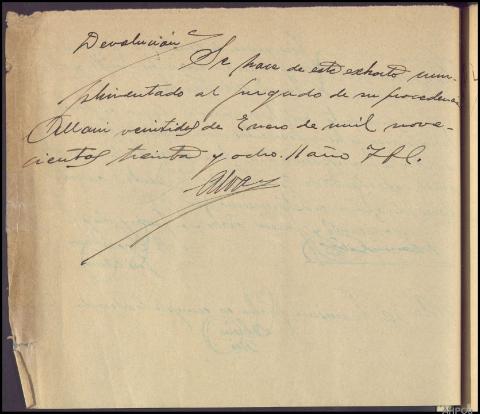 Devolución
Se hace de este exhorto cum-
plimentado al Juzgado de su procedencia
Allariz veintidos de Enero de mil nove-
cientos treinta y ocho. II año Tfl.